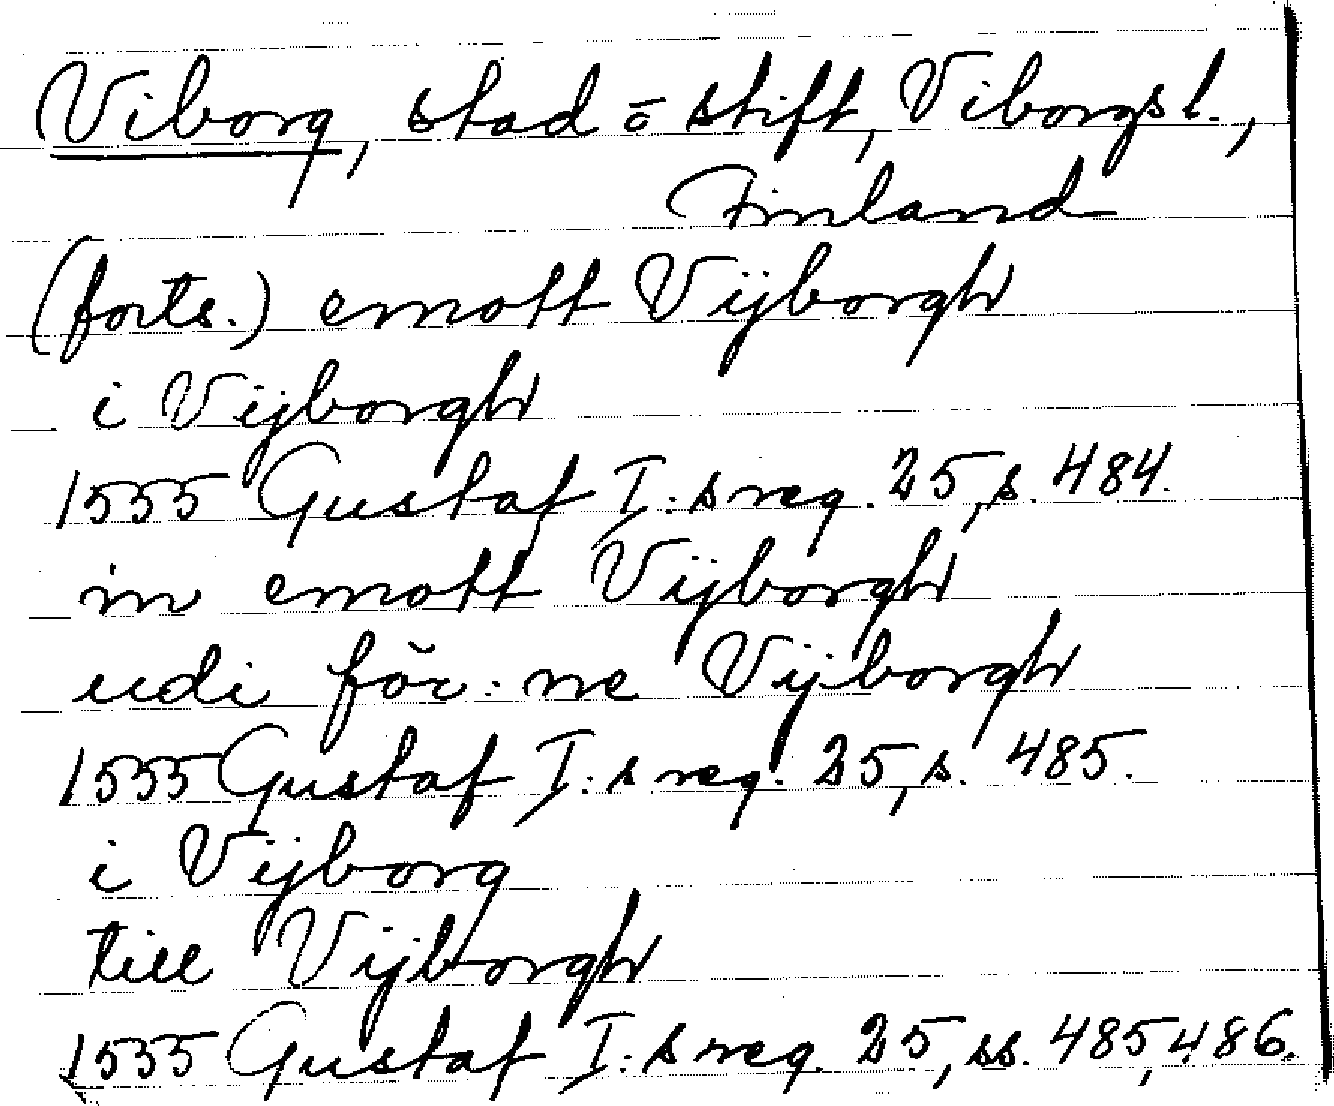 Viborg, stad o stift, Viborgs l.,
Finland
(forts.) emott Vijborgh
i Vijborgh
1555 Gustaf I:s reg. 25, s. 484.
in emott Vijborgh
udi för:ne Vijborgh
1555 Gustaf I:s reg. 25, s. 485.
i Vijborg
till Vijborgh
1555 Gustaf I:s reg. 25, ss. 485, 486.